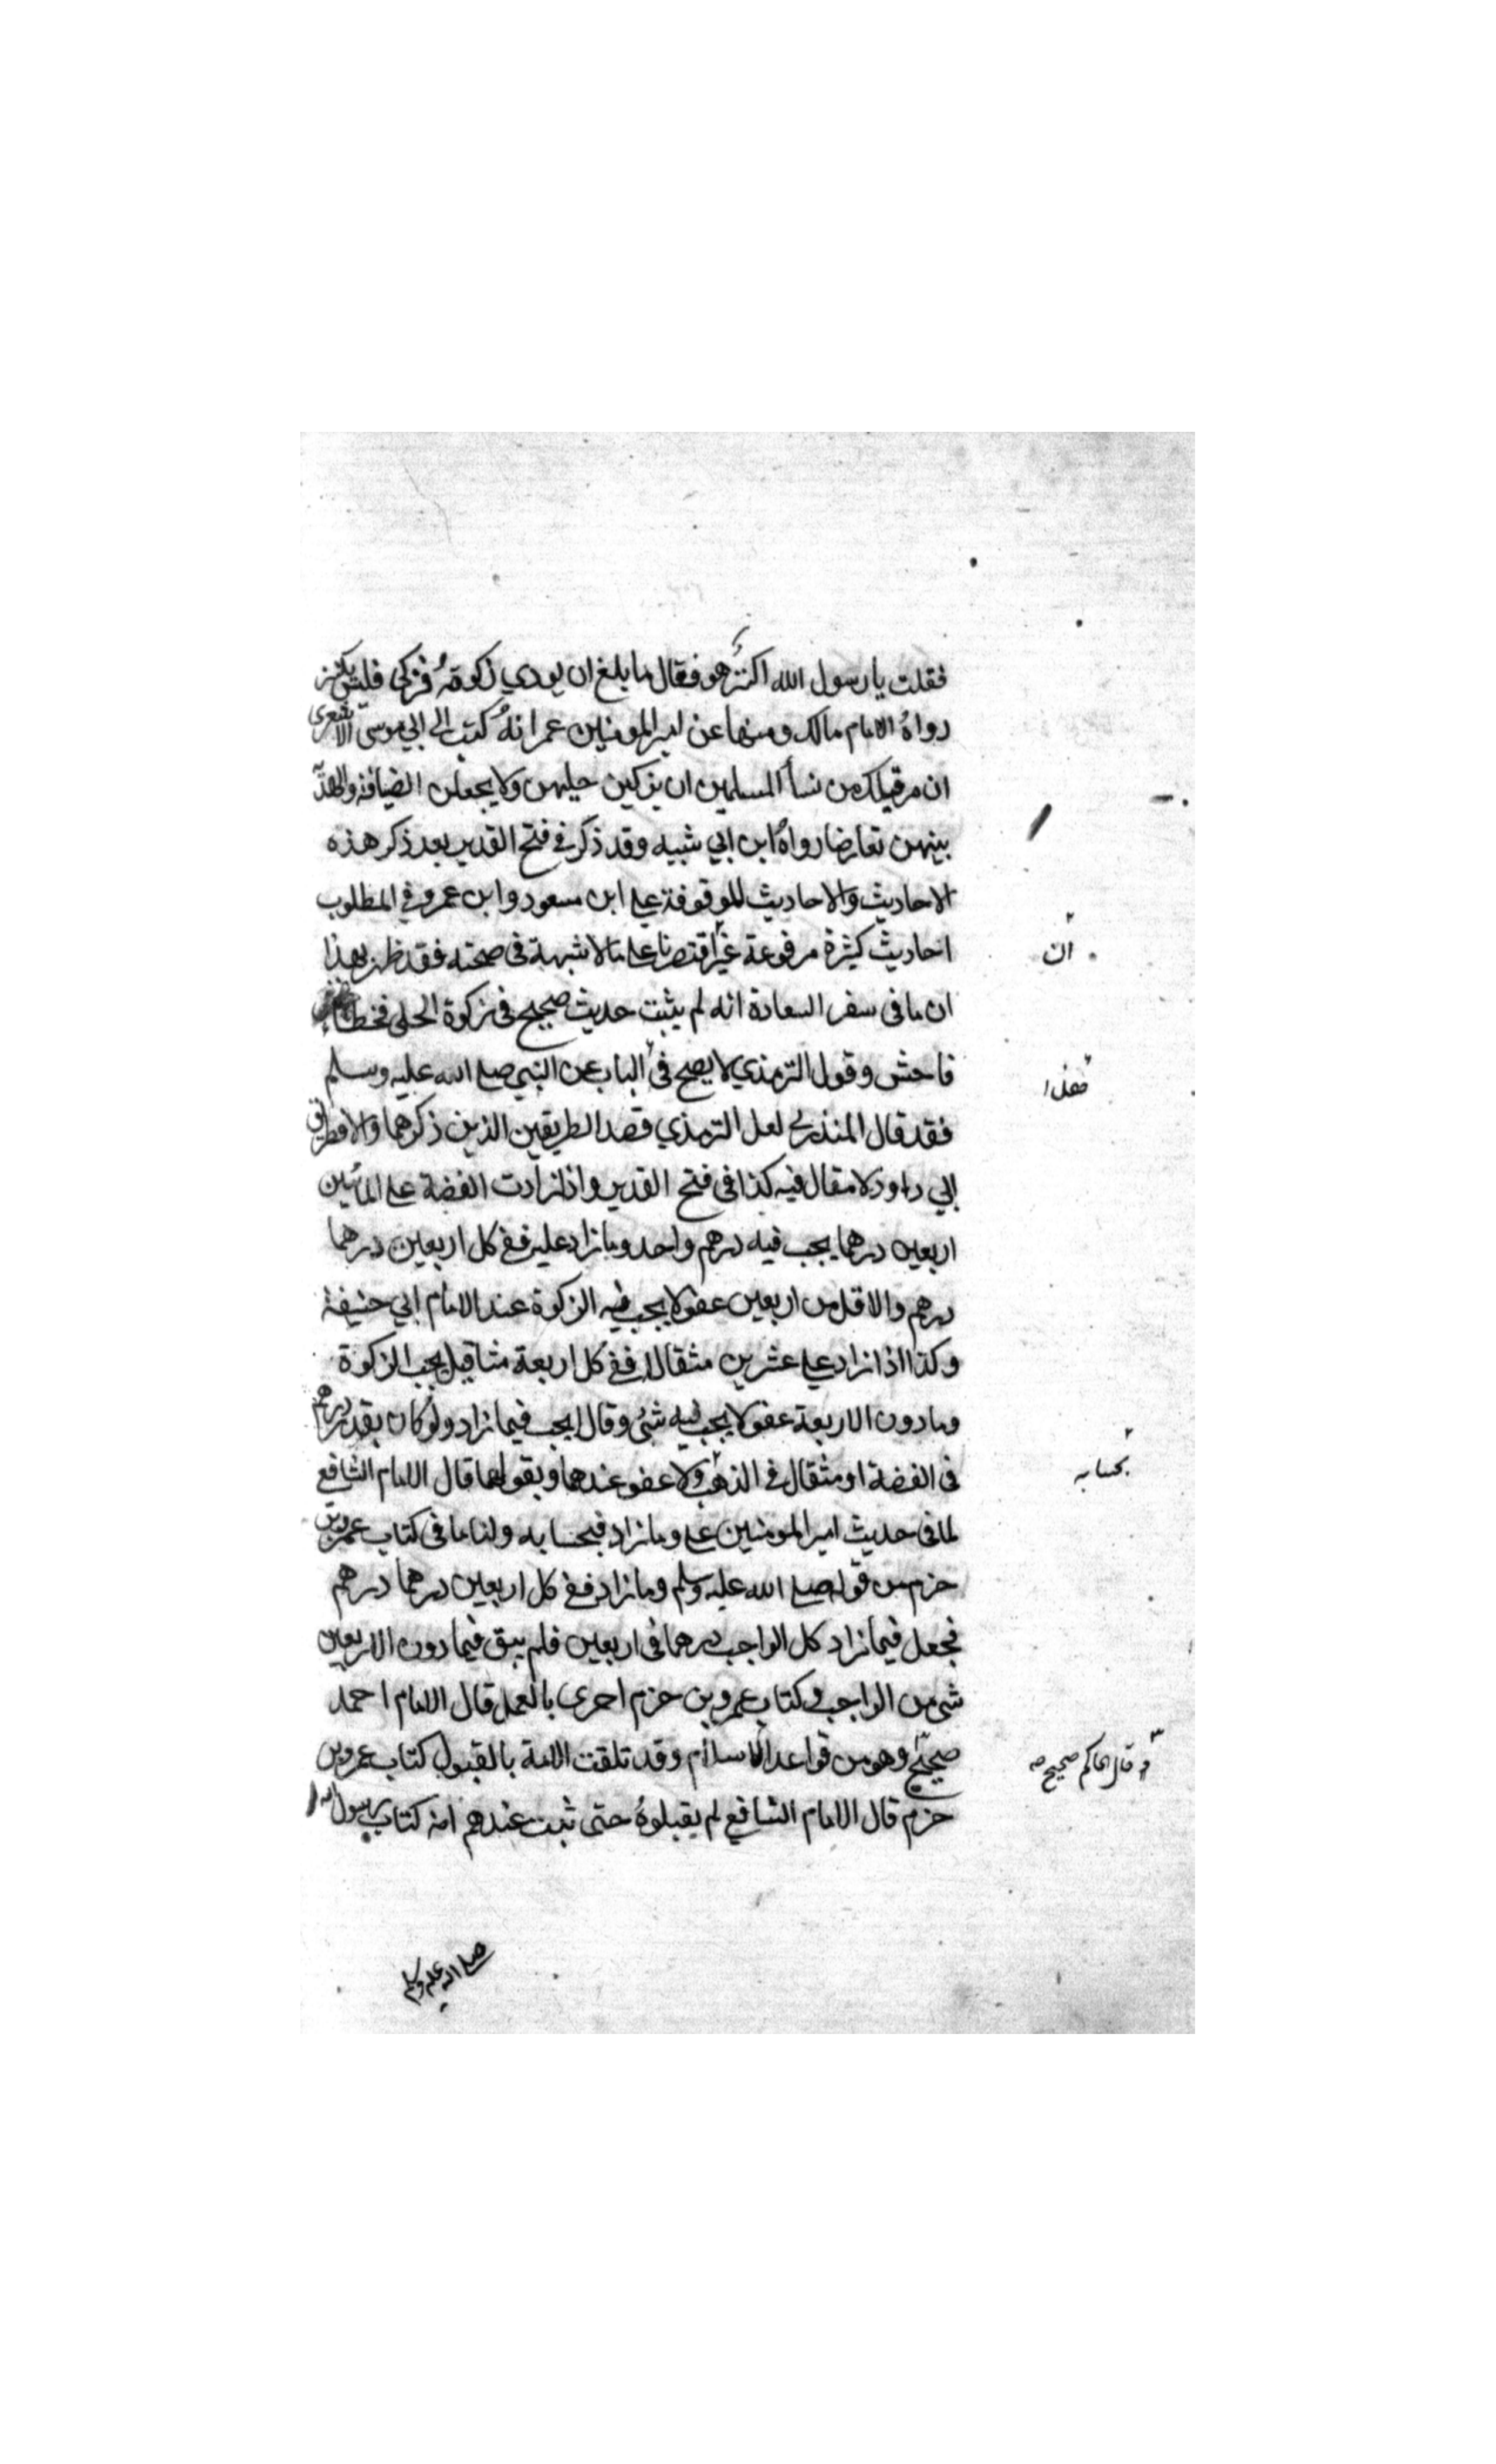 فقلت يا رسول الله اكنز هو فقال ما بلغ ان يودي زكوته فزكي فليس بكنز
رواه الامام مالك ومنها عن امير المومنين عمر انه كتب الى ابي موسى الاشعرى
ان مر قبلك من نسأ المسلمين ان يزكين حليهن ولا يجعلن الضيافة والهدية
بينهن تعارضا رواه ابن ابي شيبه وقد ذكر في فتح القدير بعد ذكر هذه
الاحاديث والاحاديث الموقوفة علي ابن مسعود وابن عمرو في المطلوب
احاديث كثيرة مرفوعة غير اقتصرنا على ما لا شبهة فى صحته فقد ظهر بهذا
ان
ان ما فى سفر السعادة انه لم يثبت حديث صحيح في زكوة الحلي فخطأ
فاحش وقول الترمذي لا يصح فى الباب عن النبي صلى الله عليه وسلم
فهذا
فقد قال المنذري لعل الترمذي قصد الطريقين الذين ذكرهما والا فطريق
ابي داود لا مقال فيه كذا فى فتح القدير واذا زادت الفضة على المأتين
اربعين درهما يجب فيه درهم واحد وما زاد عليه ففى كل اربعين درهما
درهم والاقل من اربعين عفو لا يجب فيه الزكوة عند الامام ابي حنيفة
وكذا اذا زاد علي عشرين مثقالا ففى كل اربعة مثاقيل يجب الزكوة
وما دون الاربعة عفو لا يجب فيه شئ وقالا يجب فيما زاد ولو كان بقدر درهم
فى الفضة او مثقال فى الذهب ولا عفو عندهما وبقولهما قال الامام الشافعي
بحسابه
لما فى حديث امير المومنين على وما زاد فبحسابه ولنا ما فى كتاب عمرو بن
حزم من قوله صلى الله عليه وسلم وما زاد ففى كل اربعين درهما درهم
فجعل فيما زاد كل الواجب درهما فى اربعين فلم يبق فيما دون الاربعين
شئ من الواجب وكتاب عمرو بن حزم احرى بالعمل قال الامام احمد
صحيح وهو من قواعد الاسلام وقد تلقت الامة بالقبول كتاب عمرو بن
و قال الحاكم صحيح صه
حزم قال الامام الشافعي لم يقبلوه حتى ثبت عندهم انه كتاب رسول الله
صلى الله عليه وسلم